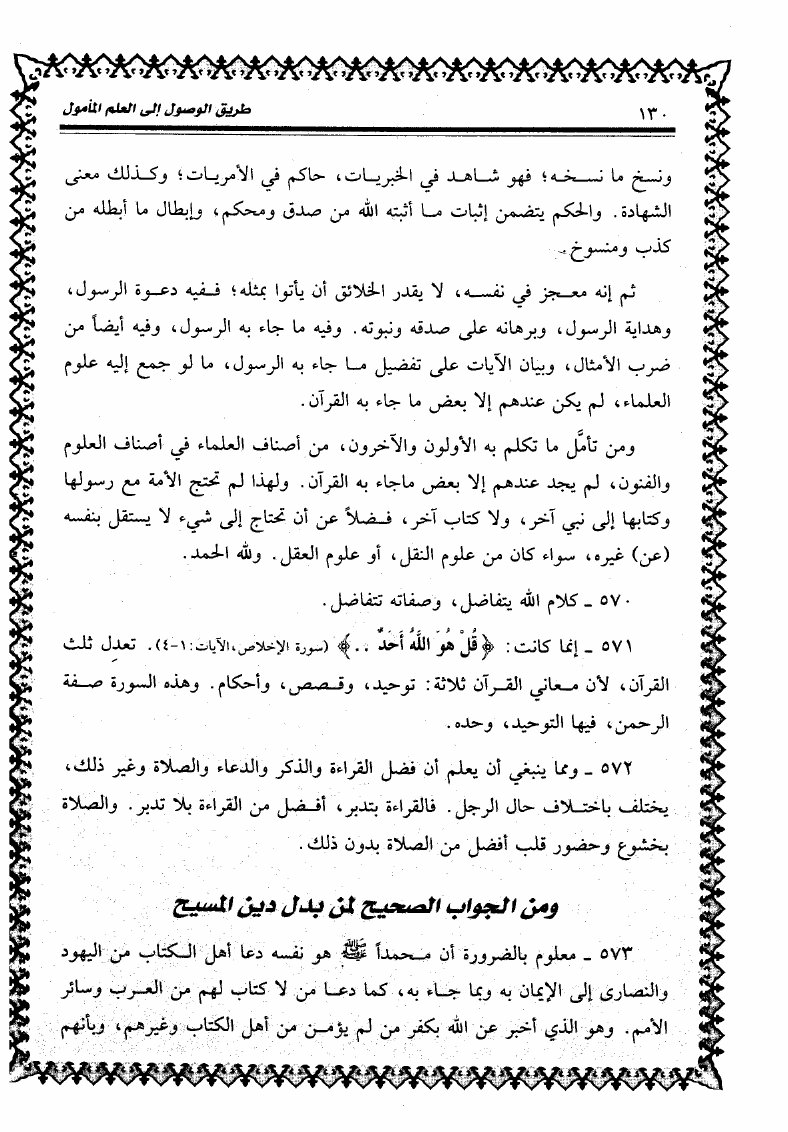 ١٣٠
طريق الوصول إلى العلم المأمول
ونسخ ما نسخه؛ فهو شاهد في الخبريات، حاكم في الأمريات؛ وكذلك معنى
الشهادة. والحكم يتضمن إثبات ما أثبته الله من صدق ومحكم، وإبطال ما أبطله من
كذب ومنسوخ.
ثم إنه معجز في نفسه، لا يقدر الخلائق أن يأتوا بمثله؛ ففيه دعوة الرسول،
وهداية الرسول، وبرهانه على صدقه ونبوته. وفيه ما جاء به الرسول، وفيه أيضاً من
ضرب الأمثال، وبيان الآيات على تفضيل ما جاء به الرسول، ما لو جمع إليه علوم
العلماء، لم يكن عندهم إلا بعض ما جاء به القرآن.
ومن تأمَّل ما تكلم به الأولون والآخرون، من أصناف العلماء في أصناف العلوم
والفنون، لم يجد عندهم إلا بعض ماجاء به القرآن. ولهذا لم تحتج الأمة مع رسولها
وكتابها إلى نبي آخر، ولا كتاب آخر، فضلاً عن أن تحتاج إلى شيء لا يستقل بنفسه
(عن) غيره، سواء كان من علوم النقل، أو علوم العقل. ولله الحمد.
٥٧٠ ـ كلام الله يتفاضل، وصفاته تتفاضل.
٥٧١ ـ إنما كانت: ﴿قُلْ هُوَ اللَّهُ أَحَدٌ ..﴾ (سورة الإخلاص، الآيات: ١-٤). تعدِل ثلث
القرآن، لأن معاني القرآن ثلاثة: توحيد، وقصص، وأحكام. وهذه السورة صفة
الرحمن، فيها التوحيد، وحده.
٥٧٢ ـ ومما ينبغي أن يعلم أن فضل القراءة والذكر والدعاء والصلاة وغير ذلك،
يختلف باختلاف حال الرجل. فالقراءة بتدبر، أفضل من القراءة بلا تدبر. والصلاة
بخشوع وحضور قلب أفضل من الصلاة بدون ذلك.
ومن الجواب الصحيح لمن بدل دين المسيح
٥٧٣ ـ معلوم بالضرورة أن محمداً ﷺ هو نفسه دعا أهل الكتاب من اليهود
والنصارى إلى الإيمان به وبما جاء به، كما دعا من لا كتاب لهم من العرب وسائر
الأمم. وهو الذي أخبر عن الله بكفر من لم يؤمن من أهل الكتاب وغيرهم، وبأنهم